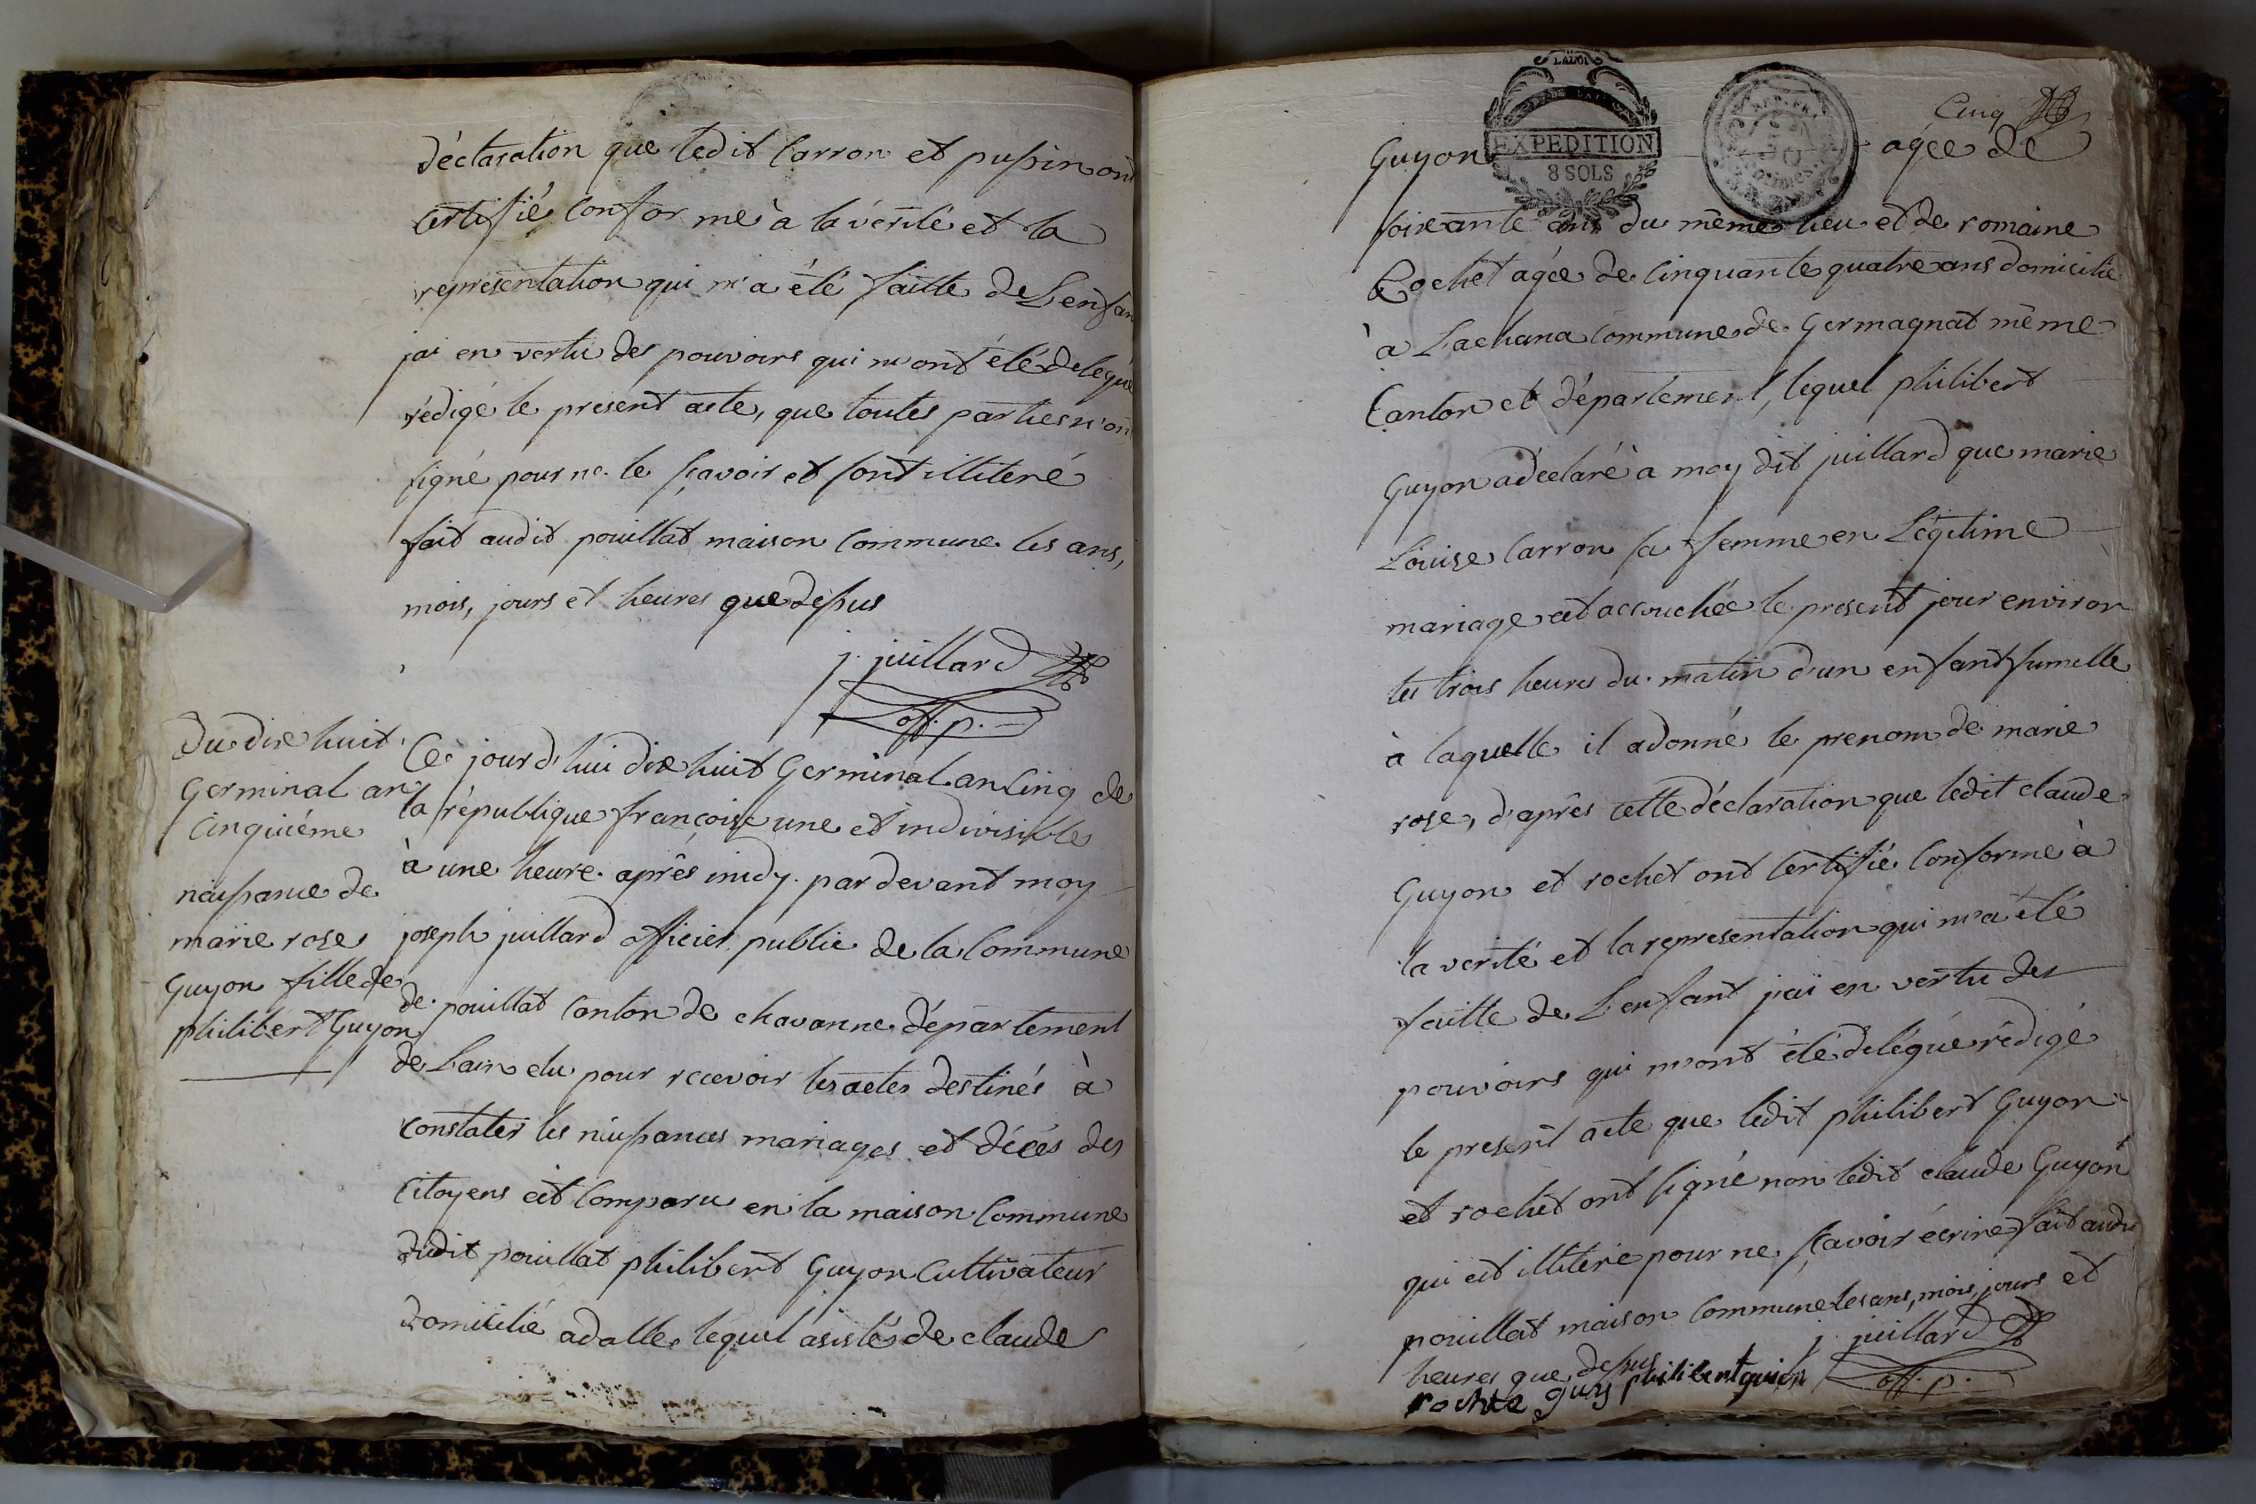 déclaration que ledit Carron et pupin ont
Certifié Conforme à la vérité et la
représentation qui m'a été faitte de L'enfan
jai en vertu des pouvoirs qui m'ont été delégué
rédigé le present acte, que toutes parties n'on
signé pour ne le sçavoir et sont illiteré
fait audit pouillat maison Commune les ans,
mois, jours et heures que dessus
j. juillard
off. p.
Du dix huit
Germinal an
Cinquiéme
naissance de
marie rose
Guyon fille de
philibert Guyon
Ce jourd'hui dix huit Germinal an Cinq de
la république françoise une et indivisible
à une heure après midy par devant moy
joseph juillard officier public de la Commune
de pouillat Canton de chavanne département
de Lain elu pour recevoir les actes destinés à
Constater les naissances mariages et décés des
Citoyens est Comparu en la maison Commune
dudit pouillat philibert Guyon Cultivateur
domicilié adalle lequel asistés de claude
Cinq
LA LOI
EXPEDITION
8 SOLS
Guyon agée de
soixante ans du même lieu et de romaine
Rochet agée de Cinquante quatre ans domicilie
à Lachana Commune de Germagnat même
Canton et département, lequel philibert
Guyon a déclaré à moy dit juillard que marie
Louise Carron sa femme en Légitime
mariage est accouchée le present jour environ
les trois heures du matin d'un enfant fumelle
à laquelle il adonné le prenom de marie
rose, d'après cette déclaration que ledit claude
Guyon et rochet ont Certifié Conforme à
la verité et la representation qui m'a été
faitte de L'enfant jai en vertu des
pouvoirs qui m'ont été délégué rédigé
le present acte que ledit philibert Guyon
et rochet ont signé non ledit claude Guyon
qui est illiteré pour ne sçavoir écrire fait audi
pouillat maison Commune les ans, mois, jours et
heures que dessus j. juillard
philibert guion off. p.